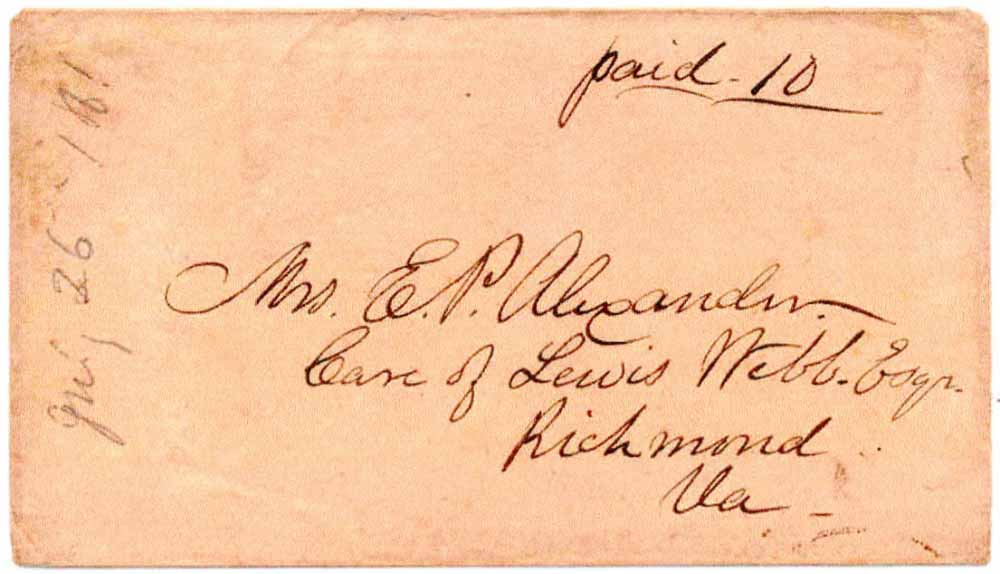 paid - 10
Mrs. E. P. Alexander.
Care of Lewis Webb. Esqr.
Richmond
Va -
26